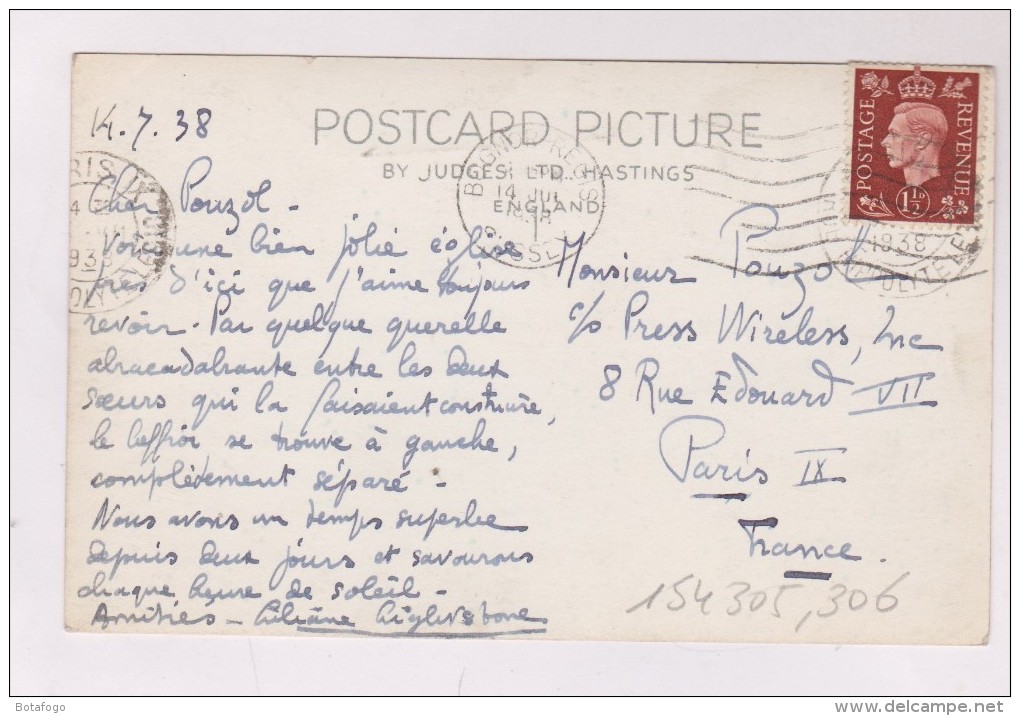 14.7.38
POSTCARD PICTURE
BY JUDGES, LTD. HASTINGS
ENGLAND
POSTAGE REVENUE
1½D
BOGNOR REGIS
14 JUL
SUSSEX
1938
Cher Pouzol -
Voici une bien jolie église
près d'ici que j'aime toujours
revoir. Par quelque querelle
abracadabrante entre les deux
sœurs qui la faisaient construire,
le beffroi se trouve à gauche,
complètement séparé -
Nous avons un temps superbe
depuis deux jours et savourons
chaque heure de soleil -
Amitiés - Liliane
Monsieur Pouzol
c/o Press Wireless, Inc
8 Rue Edouard VII
Paris IX
France.
154305,306
Botafogo
www.delcampe.net